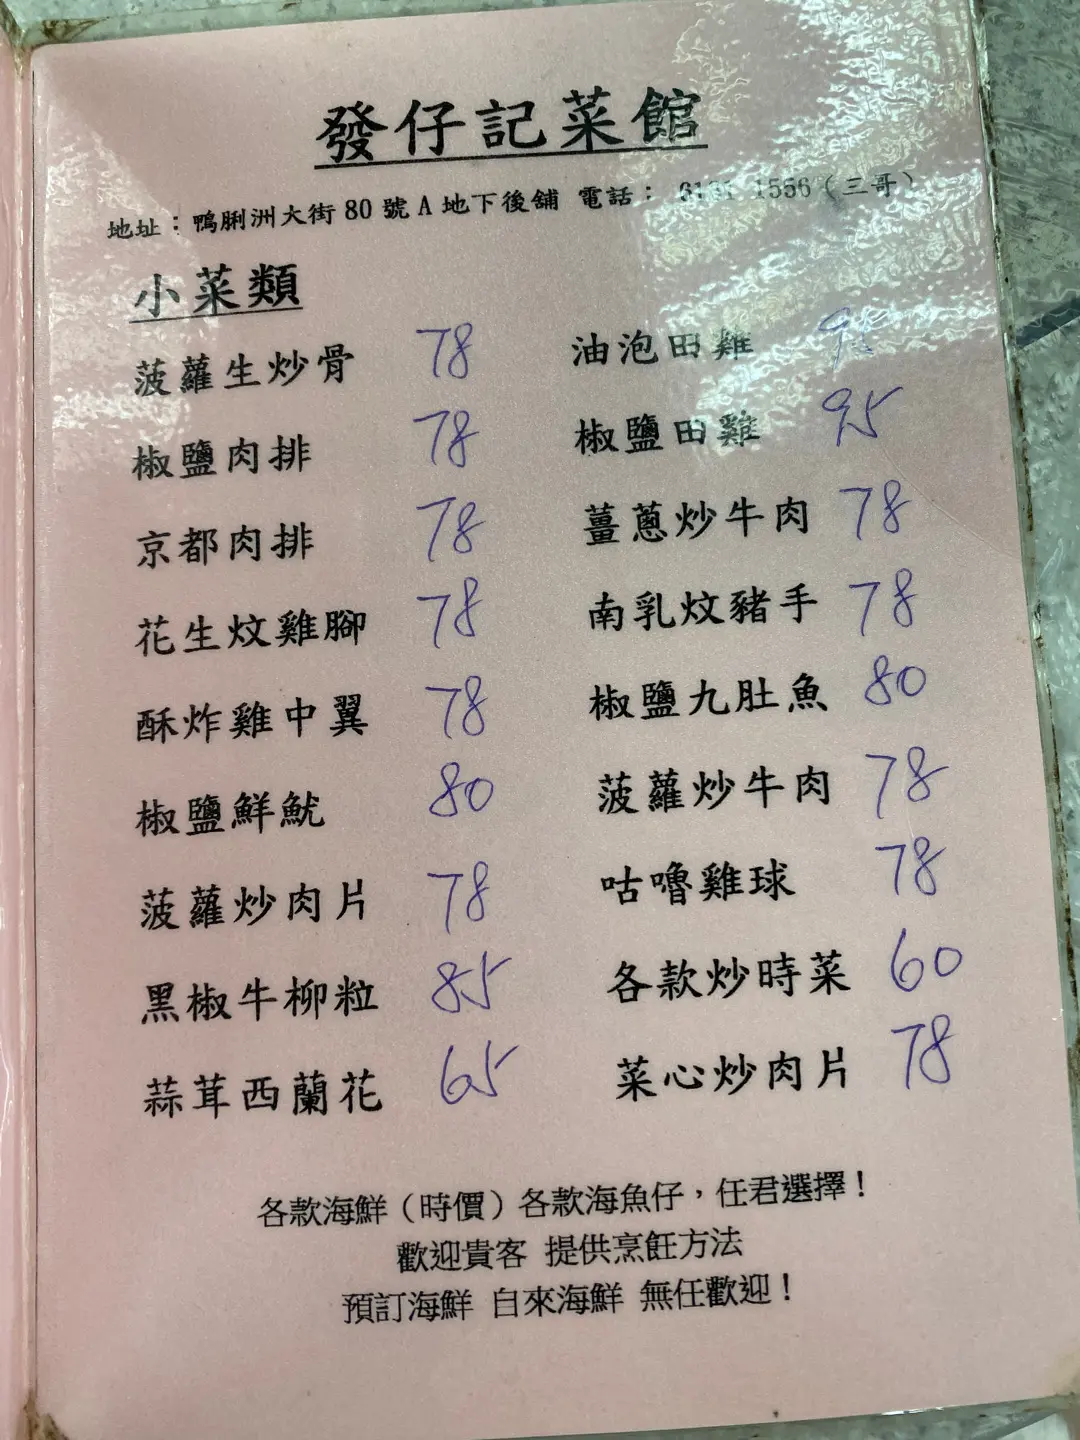 發仔記菜館
地址：鴨脷洲大街80號A地下後舖 電話： 1556（三哥）
小菜類
菠蘿生炒骨 78 油泡田雞
椒鹽肉排 78 椒鹽田雞 95
京都肉排 78 薑蔥炒牛肉 78
花生炆雞腳 78 南乳炆豬手 78
酥炸雞中翼 78 椒鹽九肚魚 80
椒鹽鮮魷 80 菠蘿炒牛肉 78
菠蘿炒肉片 78 咕嚕雞球 78
黑椒牛柳粒 85 各款炒時菜 60
蒜茸西蘭花 65 菜心炒肉片 78
各款海鮮（時價）各款海魚仔，任君選擇！
歡迎貴客 提供烹飪方法
預訂海鮮 自來海鮮 無任歡迎！